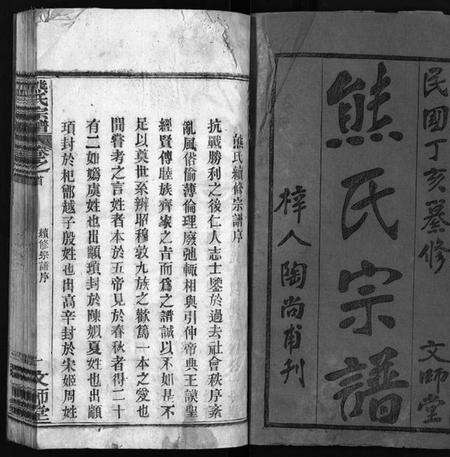 民國丁亥纂修
熊氏宗譜
文師堂
梓人陶尚甫刊
熊氏續修宗譜序
抗戰勝利之後仁人志士鑒於過去社會秩序紊
亂風俗偷薄倫理廢弛輒相與引伸帝典王謨聖
經賢傳睦族齊家之旨而爲之譜誠以不如是不
足以奠世系辨昭穆敦九族之歡篤一本之愛也
間嘗考之言姓者本於五帝見於春秋者得二十
有二如嬀虞姓也出顓頊封於陳姒夏姓也出顓
頊封於杞鄫越子殷姓也出高辛封於宋姬周姓
熊氏宗譜
卷之首
續修宗譜序
一
文師堂